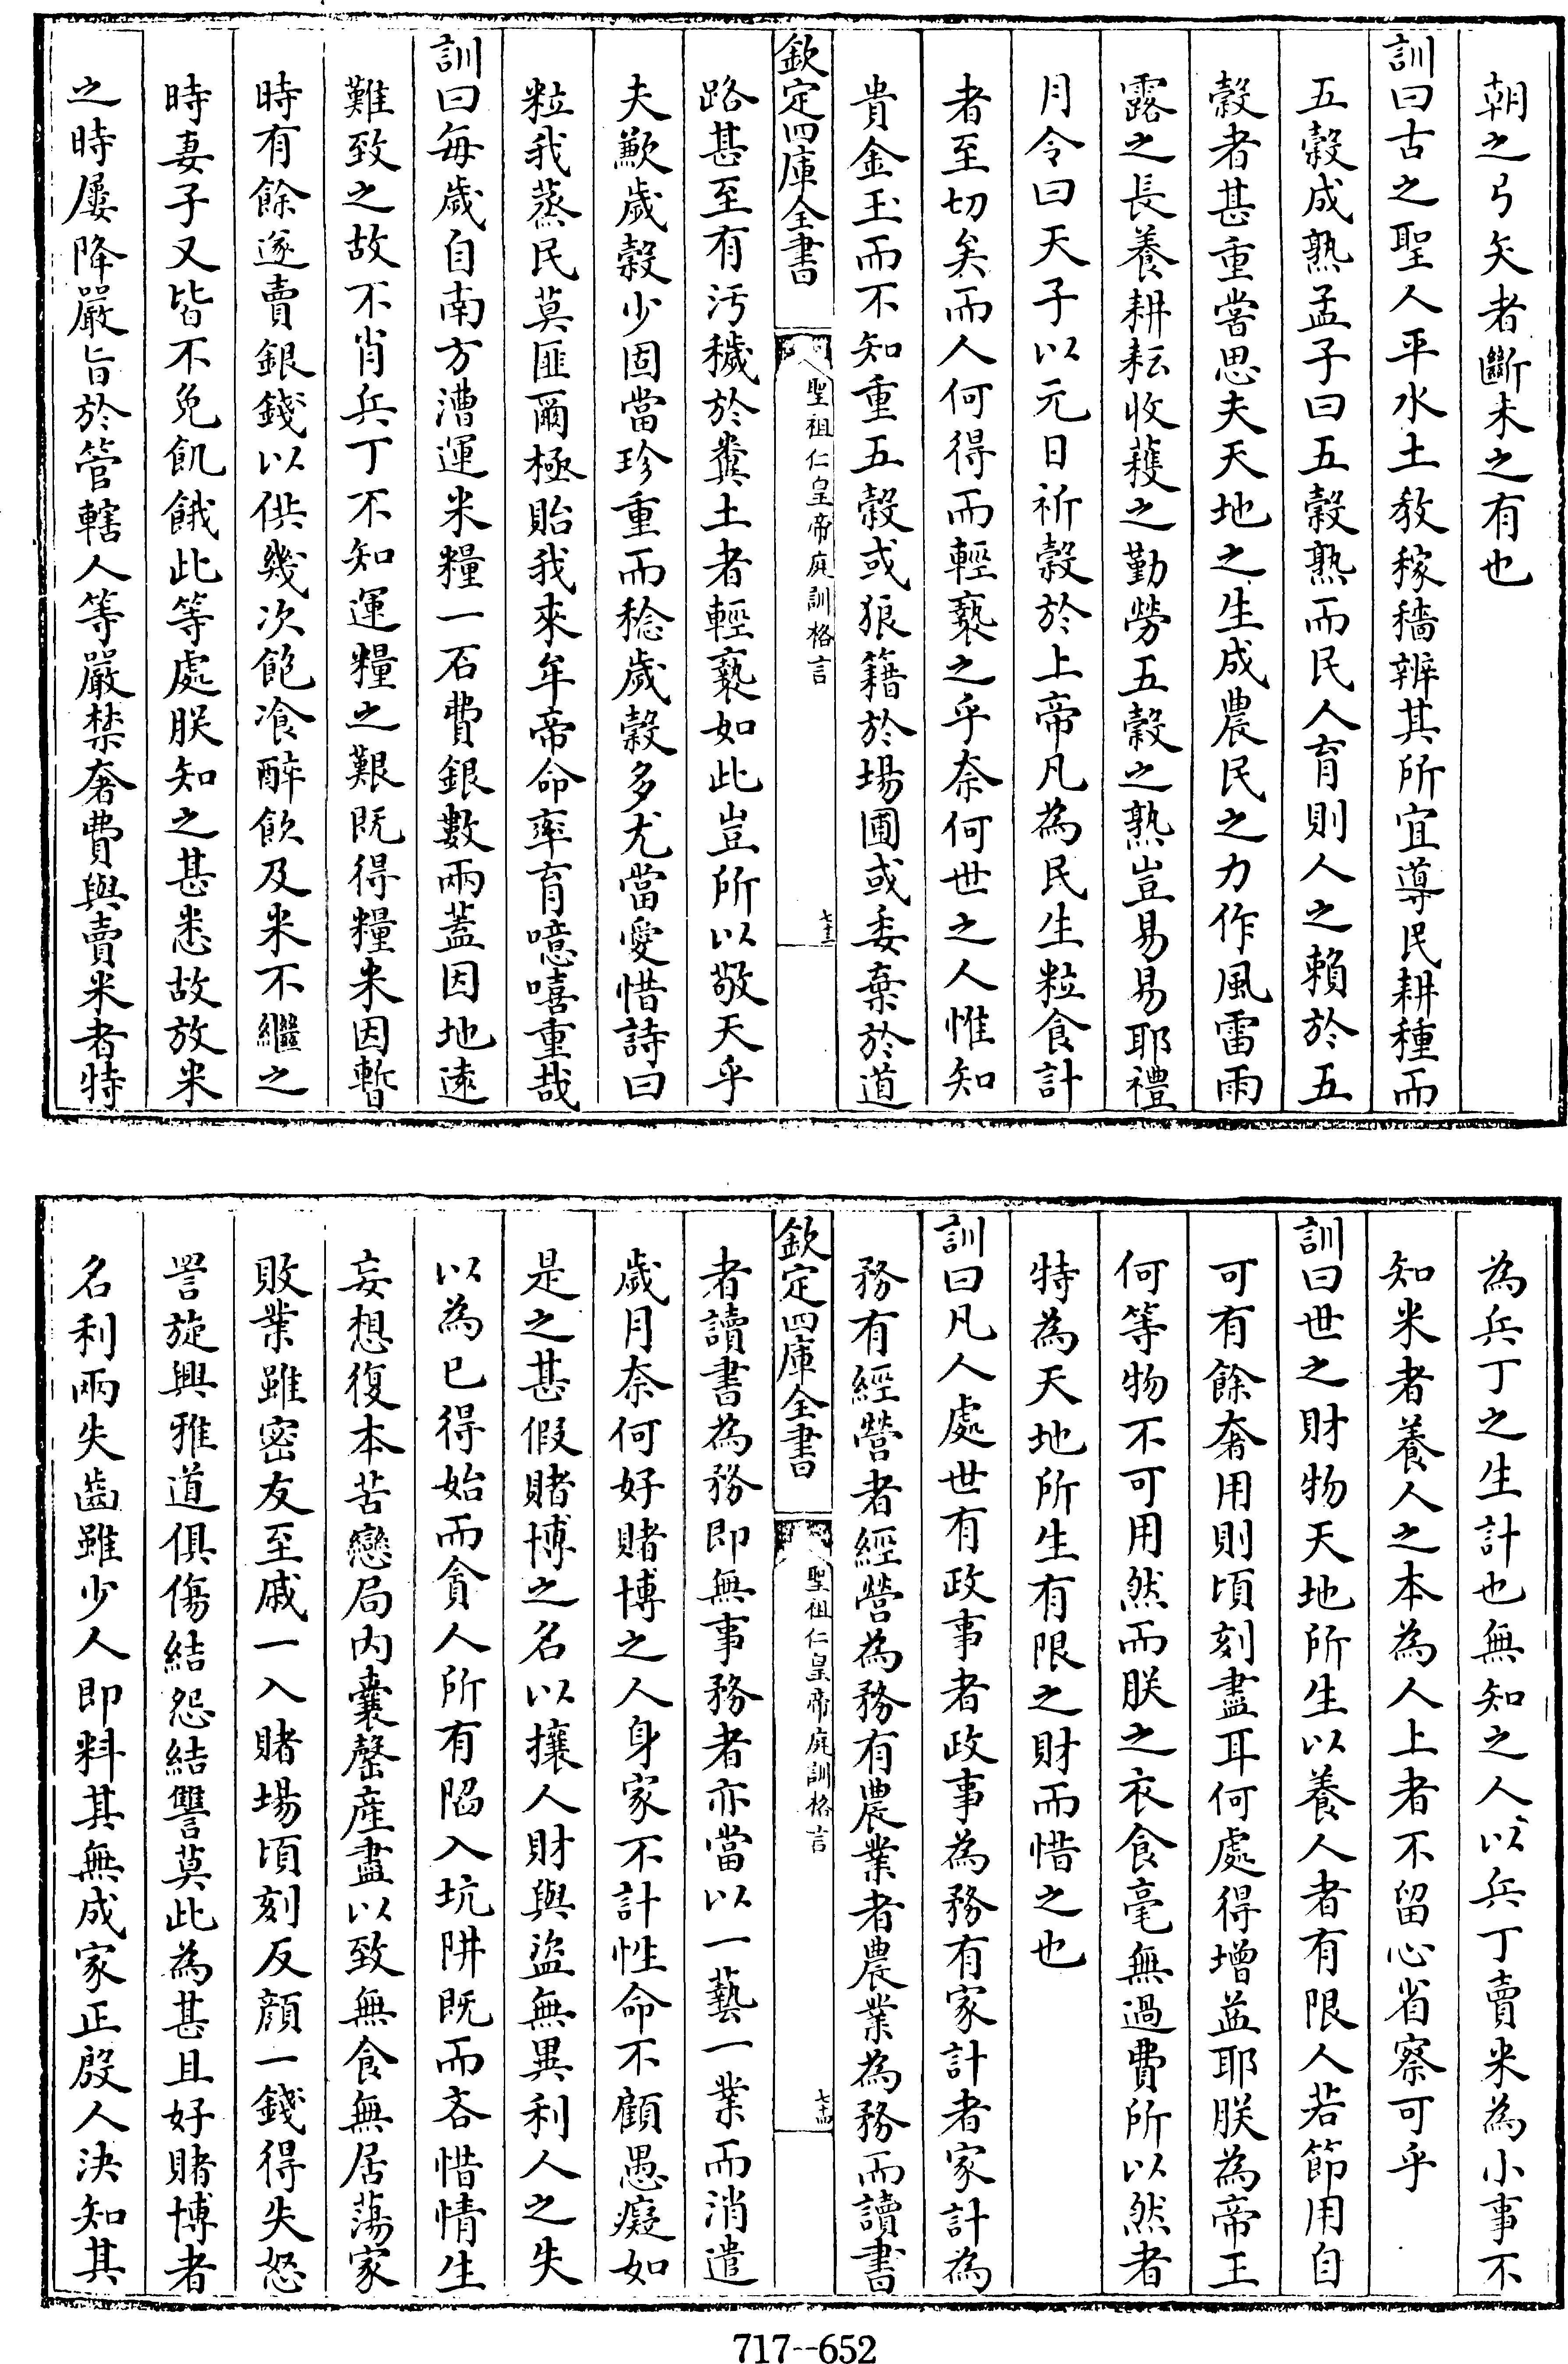 朝之弓矢者斷未之有也
訓曰古之聖人平水土教稼穡辨其所宜導民耕種而
五穀成熟孟子曰五穀熟而民人育則人之賴於五
穀者甚重嘗思夫天地之生成農民之力作風雷雨
露之長養耕耘收穫之勤勞五穀之熟豈易易耶禮
月令曰天子以元日祈穀於上帝凡為民生粒食計
者至切矣而人何得而輕褻之乎奈何世之人惟知
貴金玉而不知重五穀或狼籍於場圃或委棄於道
欽定四庫全書
聖祖仁皇帝庭訓格言
七十三
路甚至有汚穢於糞土者輕褻如此豈所以敬天乎
夫歉歲穀少固當珍重而稔歲穀多尤當愛惜詩曰
粒我蒸民莫匪爾極貽我來牟帝命率育噫嘻重哉
訓曰每歲自南方漕運米糧一石費銀數兩蓋因地遠
難致之故不肖兵丁不知運糧之艱既得糧米因暫
時有餘遂賣銀錢以供幾次飽飡醉飲及米不繼之
時妻子又皆不免飢餓此等處朕知之甚悉故放米
之時屢降嚴旨於管轄人等嚴禁奢費與賣米者特
為兵丁之生計也無知之人以兵丁賣米為小事不
知米者養人之本為人上者不留心省察可乎
訓曰世之財物天地所生以養人者有限人若節用自
可有餘奢用則頃刻盡耳何處得增益耶朕為帝王
何等物不可用然而朕之衣食毫無過費所以然者
特為天地所生有限之財而惜之也
訓曰凡人處世有政事者政事為務有家計者家計為
務有經營者經營為務有農業者農業為務而讀書
欽定四庫全書
聖祖仁皇帝庭訓格言
七十四
者讀書為務即無事務者亦當以一藝一業而消遣
歲月奈何好賭博之人身家不計性命不顧愚癡如
是之甚假賭博之名以攘人財與盜無異利人之失
以為已得始而貪人所有陷入坑阱既而吝惜情生
妄想復本苦戀局內囊罄産盡以致無食無居蕩家
敗業雖密友至戚一入賭場頃刻反顔一錢得失怒
詈旋興雅道俱傷結怨結讐莫此為甚且好賭博者
名利兩失齒雖少人即料其無成家正殷人決知其
717--652